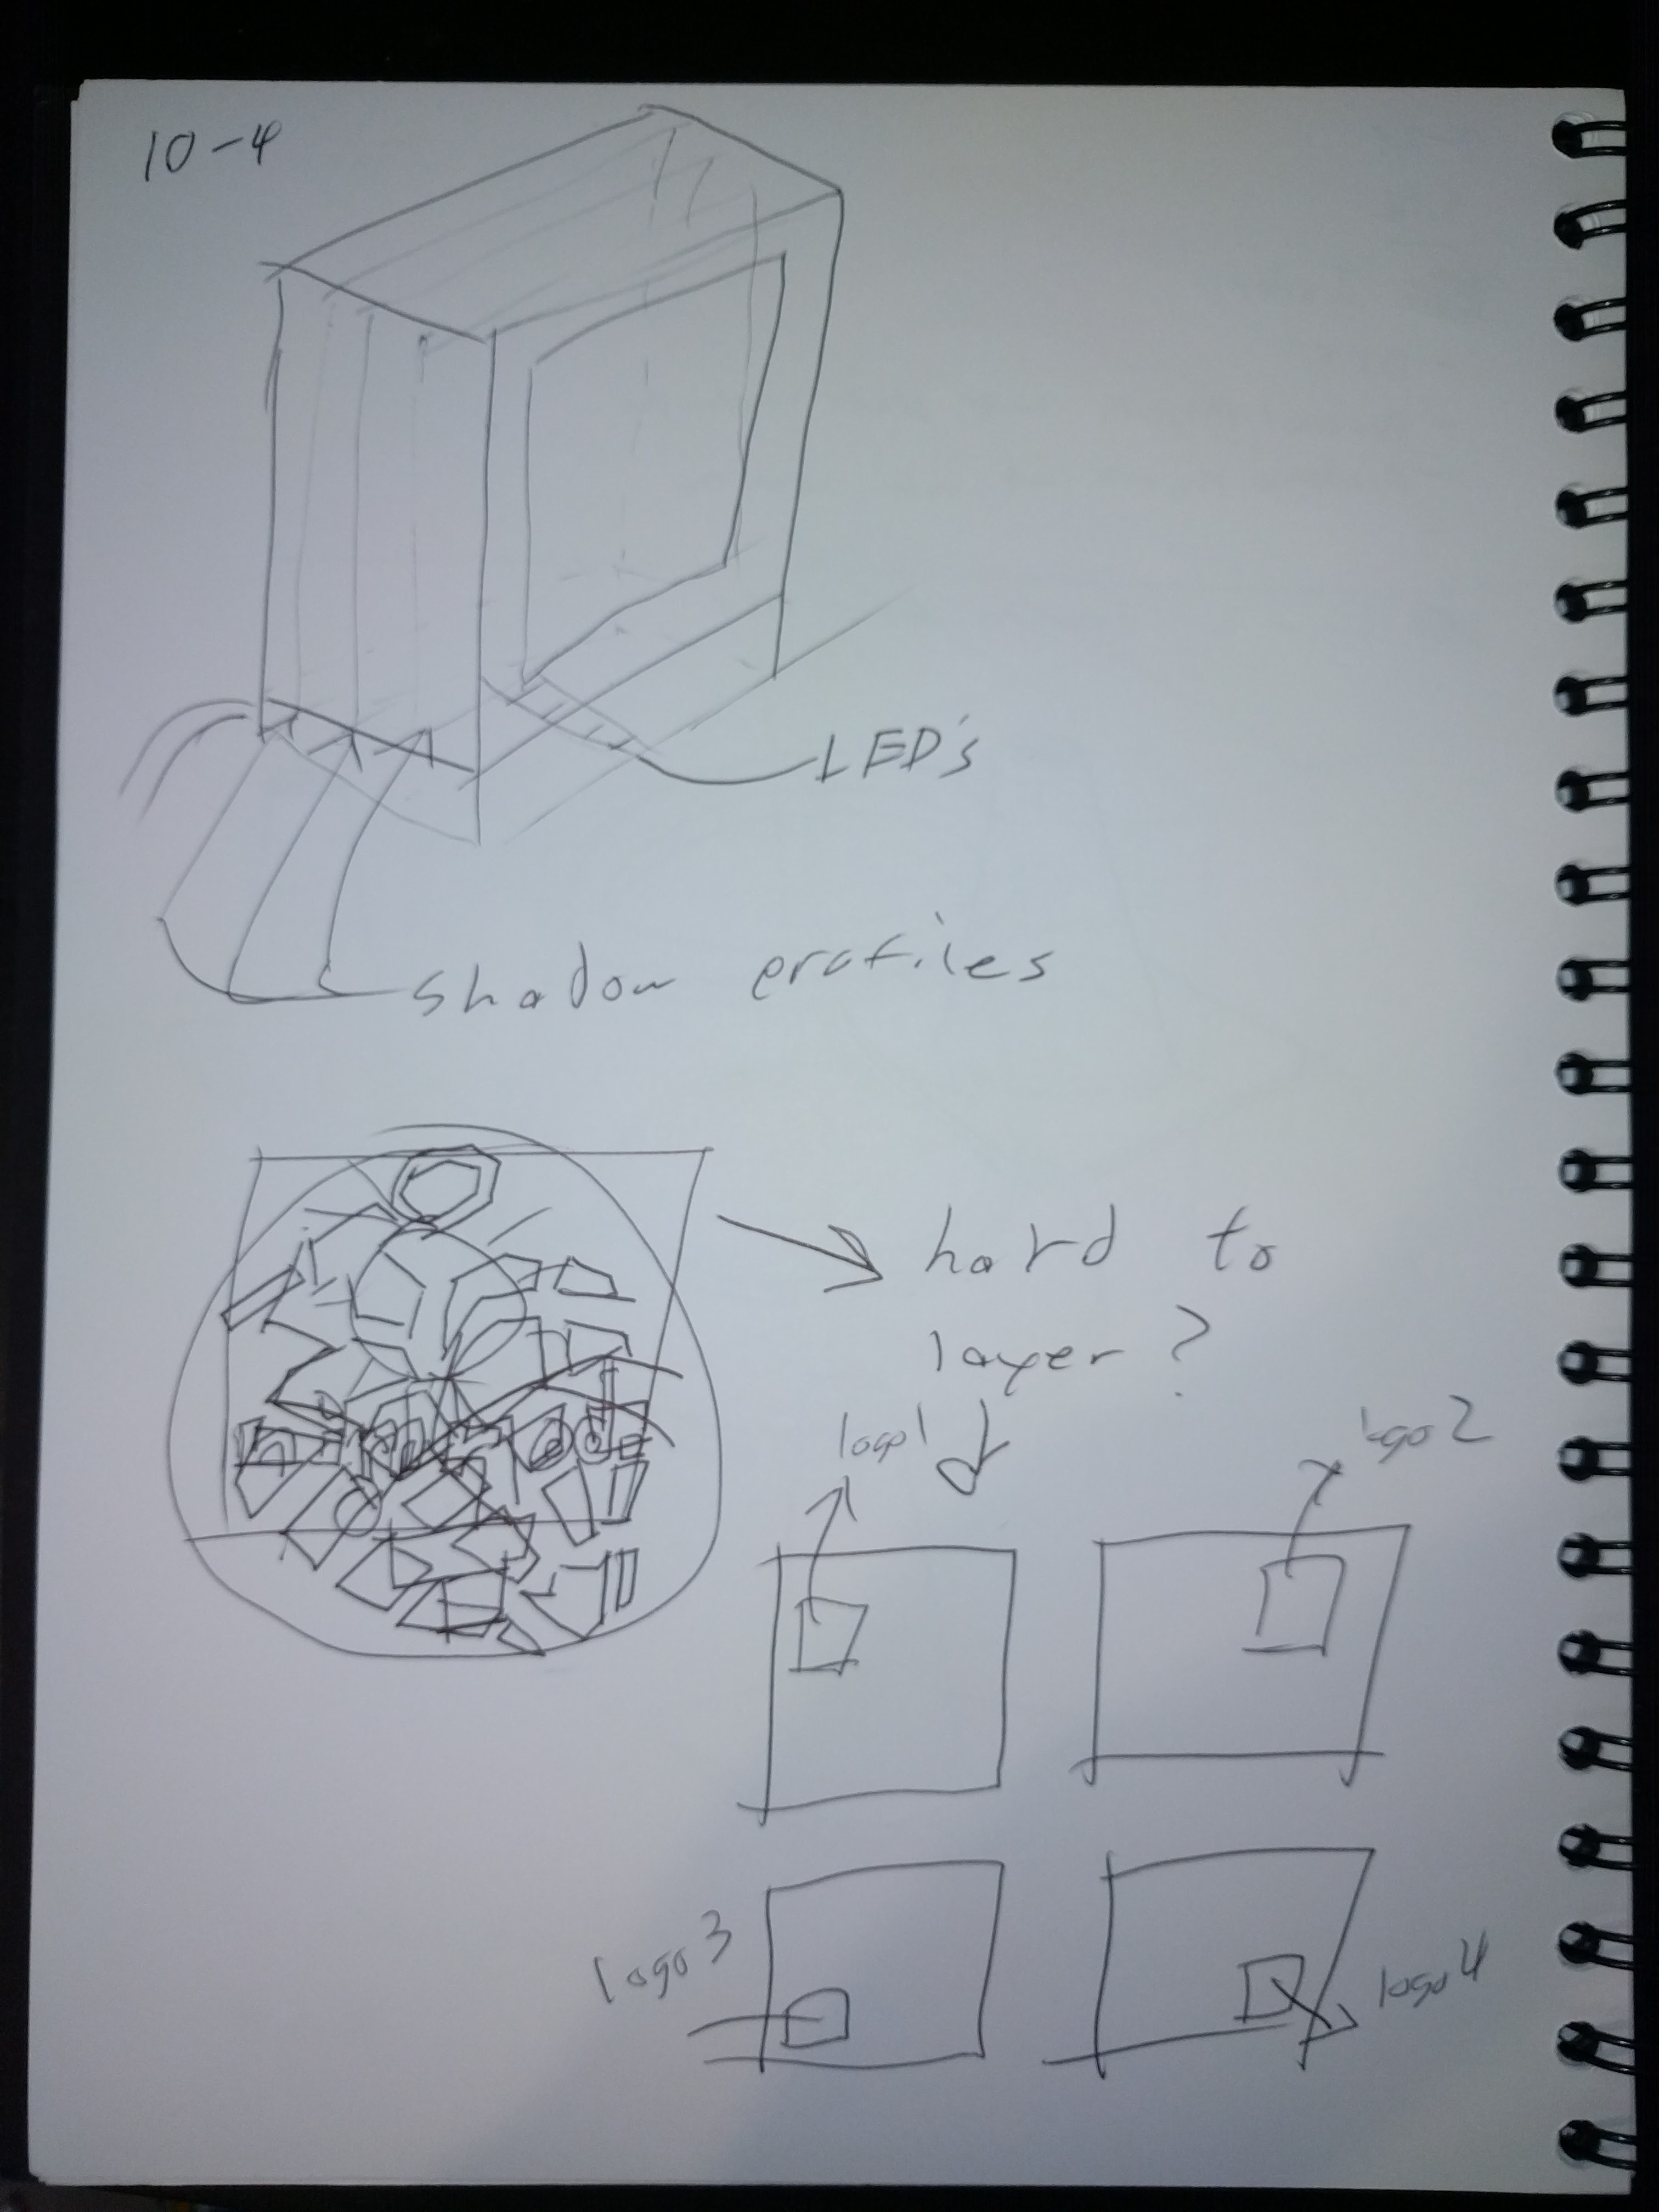 10-4
LED's
shadow profiles
hard to
layer?
logo1
logo2
logo3
logo4